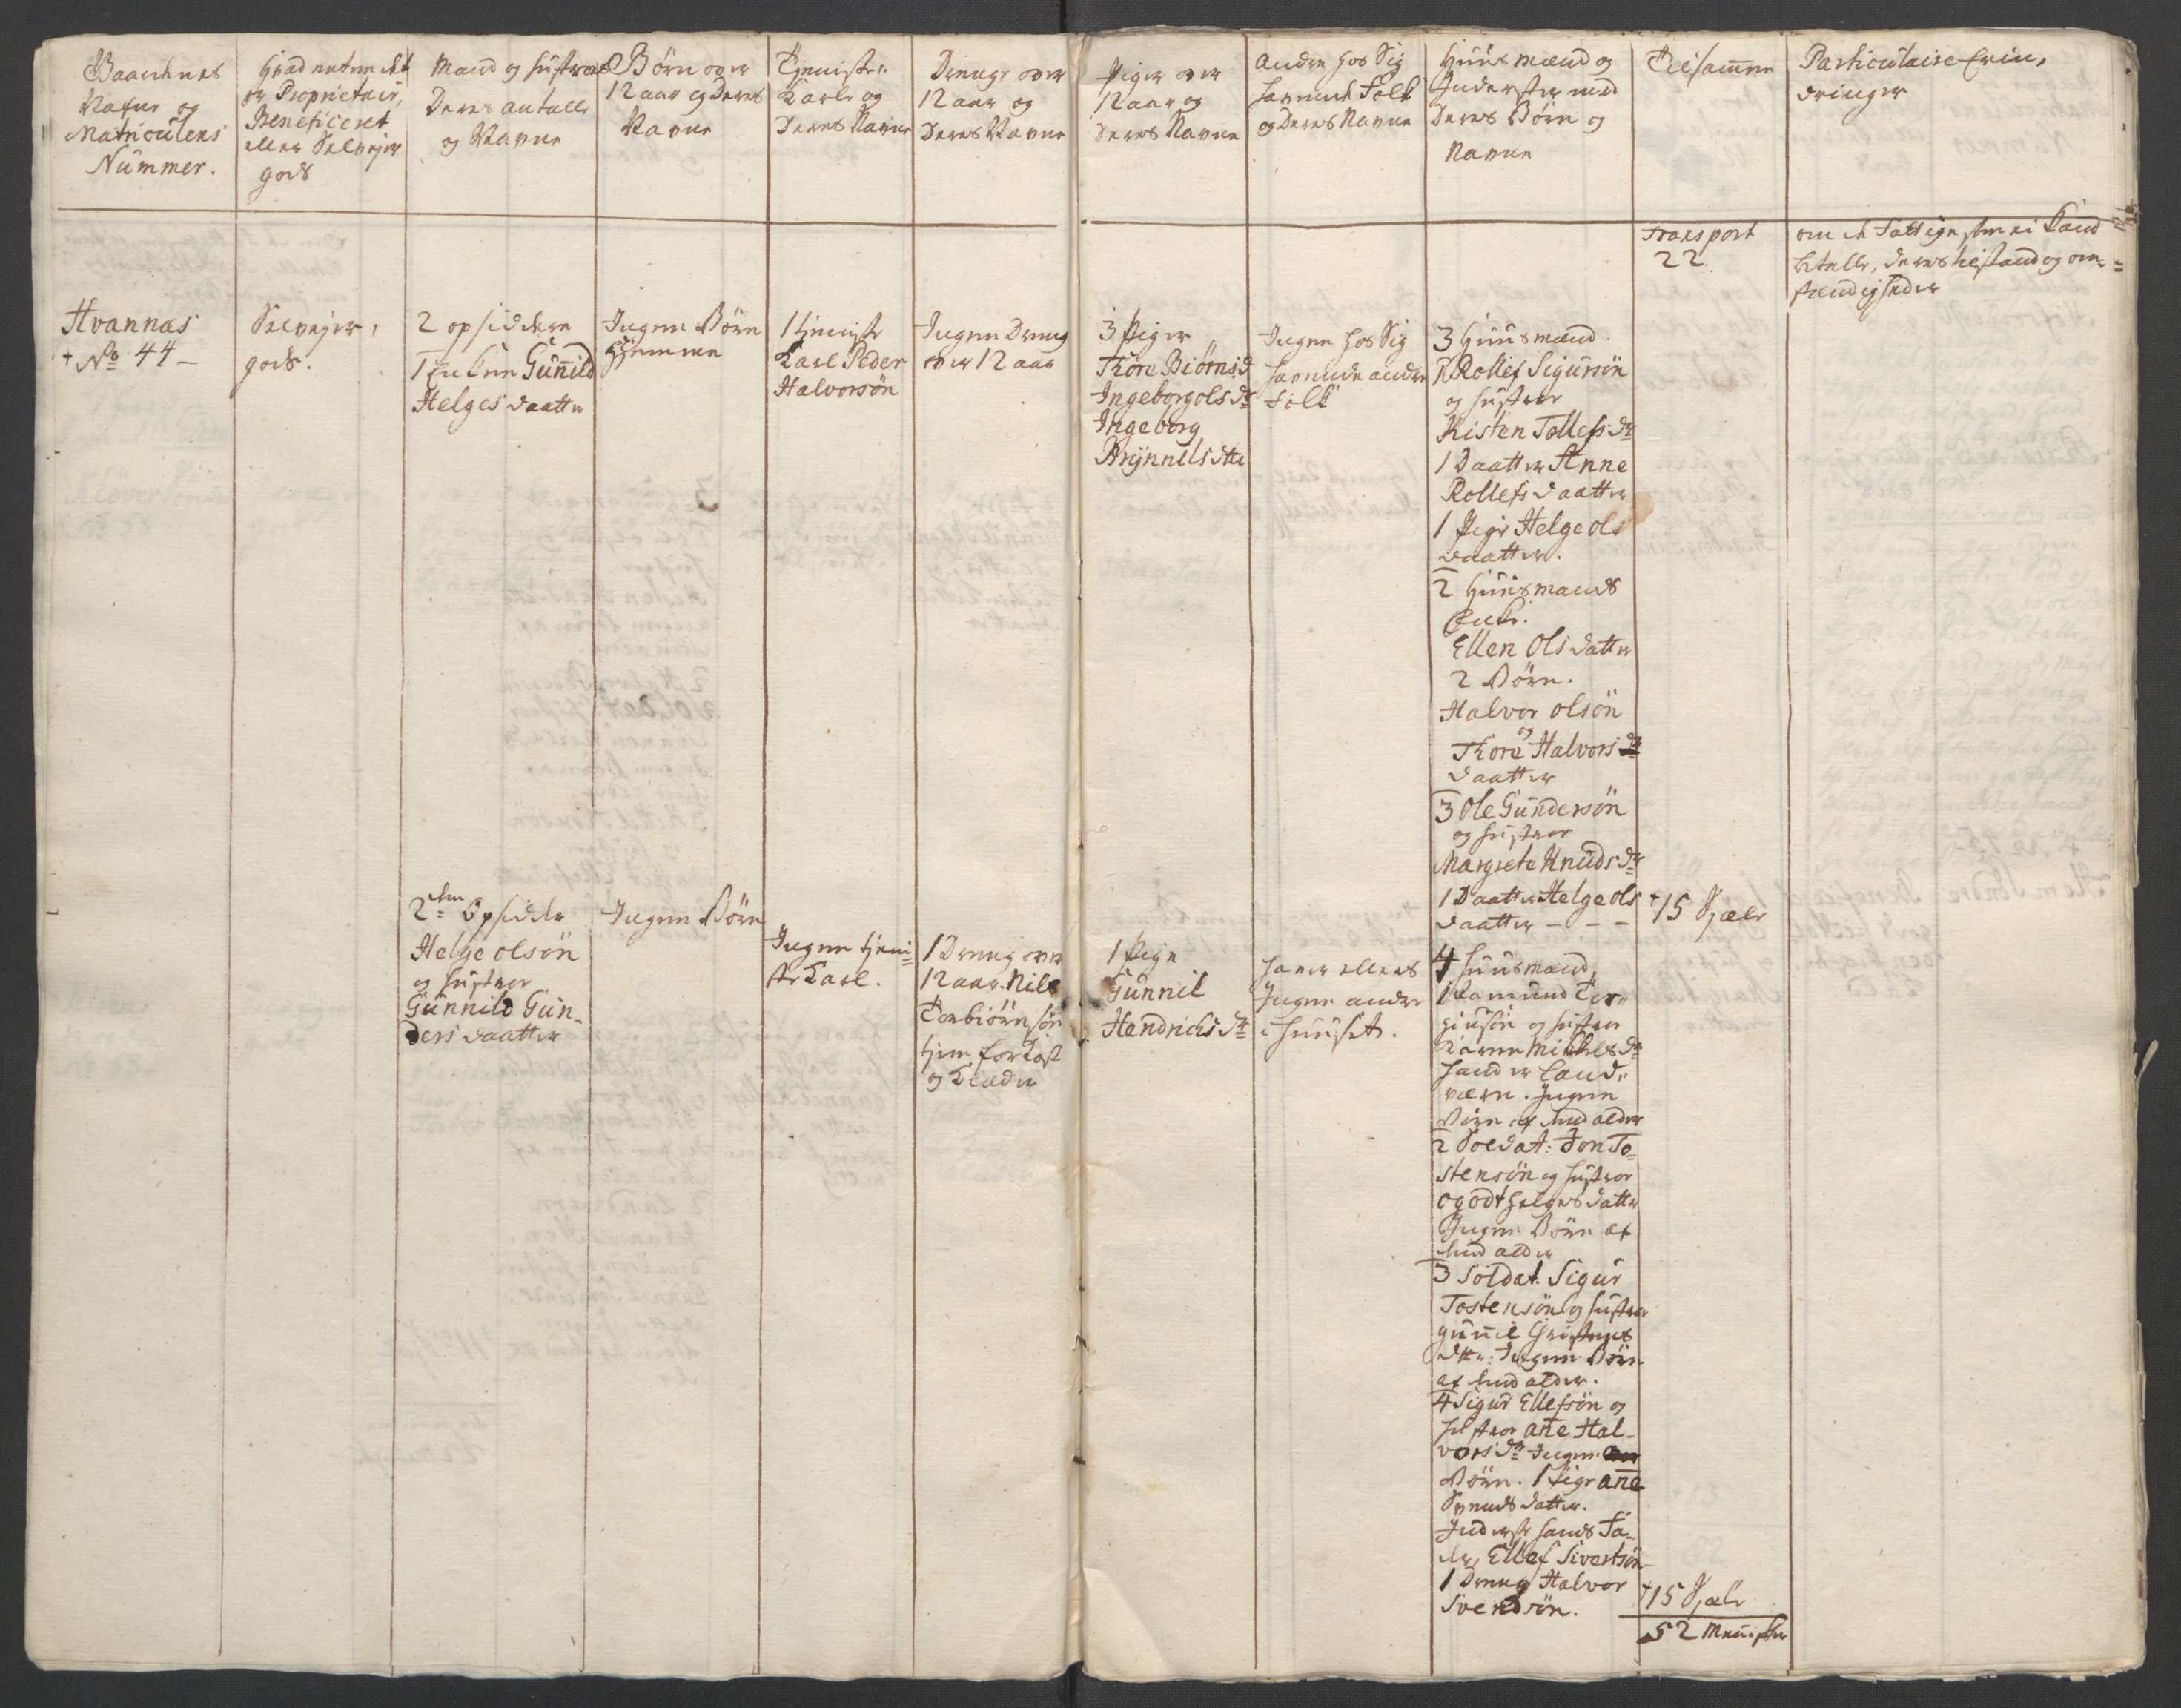 Gaardenes
Nafne og
Matriculens
Nummer.
Hvad enten det
er Proprietair,
Beneficeret
eller Selvejer
gods
Mand og hustroe
Deres antall
og Navne
Børn over
12 aar og Deres
Navne
Tjeniste
Karle og
Deres Navne
Drenge over
12 aar og
Deres Navne
Piger over
12 aar og
Deres Navne
Andre hos Sig
havende Folk
og Deres Navne
Huusmænd og
Inderster med
Deres Børn og
Navne
Tilsammen
Particulaire Erin,
dringer
Transport
22
om de Fattige
betalle, deres tilstand og om-
stændigheder
Hvannas
+ No 44 -
Selvejer,
gods.
2 opsiddere
1 Enke Gunild
Helges daatter
Ingen Børn
hiemme
1 tjeniste
Karl Peder
Halvorsön
Ingen Dreng
over 12 aar
3 Piger
Thore Biörns d
Ingeborg ols dr
Ingeborg
Brynnels dtr
Ingen hos Sig
havende andre
Folk
3 Huusmænd
1 Rollef Sigursön
og hustroe
Kisten Tollefs dr
1 Daatter Anne
Rollefs daatter
1 Pige Helge ols
daatter.
2 Huusmands
Enke.
Ellen Ols datter
2 Börn.
Halvor olsön
og
Thore Halvors dr
daatter
3 Ole Gundersön
og hustroe
Margrete Knuds dr
1 Daatter Helge ols
daatter - - -
+ 15 Sjæle
2den Opsidder
Helge olsön
og hustroe
Gunnild Gun-
ders daatter
Ingen Børn
Ingen tjeni-
ste Karl.
1 Dreng over
12 aar. Nils
Torbiörnsön
tjener for kost
og Klæder
1 Pige
Gunnil
Hendrichs dr
haver ellers
Ingen andre
i huuset.
4 huusmænd,
1 Aamund Ter-
giusön og hustroe
Karen Mickels dr
hand er Land-
værn. Ingen
Börn af dend alder
2 Soldat: Jon To-
stensön og hustroe
ogodt helges datter
Ingen Börn af
dend alder
3 Soldat. Sigur
Tostensön og hustroe
gunnil Gristens
dtr: Ingen Börn
af dend alder.
4 Sigur Ellefsön og
hustroe ane Hal-
vors dr Ingen
Börn. 1 Pige ane
Svends datter.
Inderste hands Fa-
der, Ellef Sivertsön
1 Dreng Halvor
Svendsön.
+ 15 Sjæle
52 Mennisker